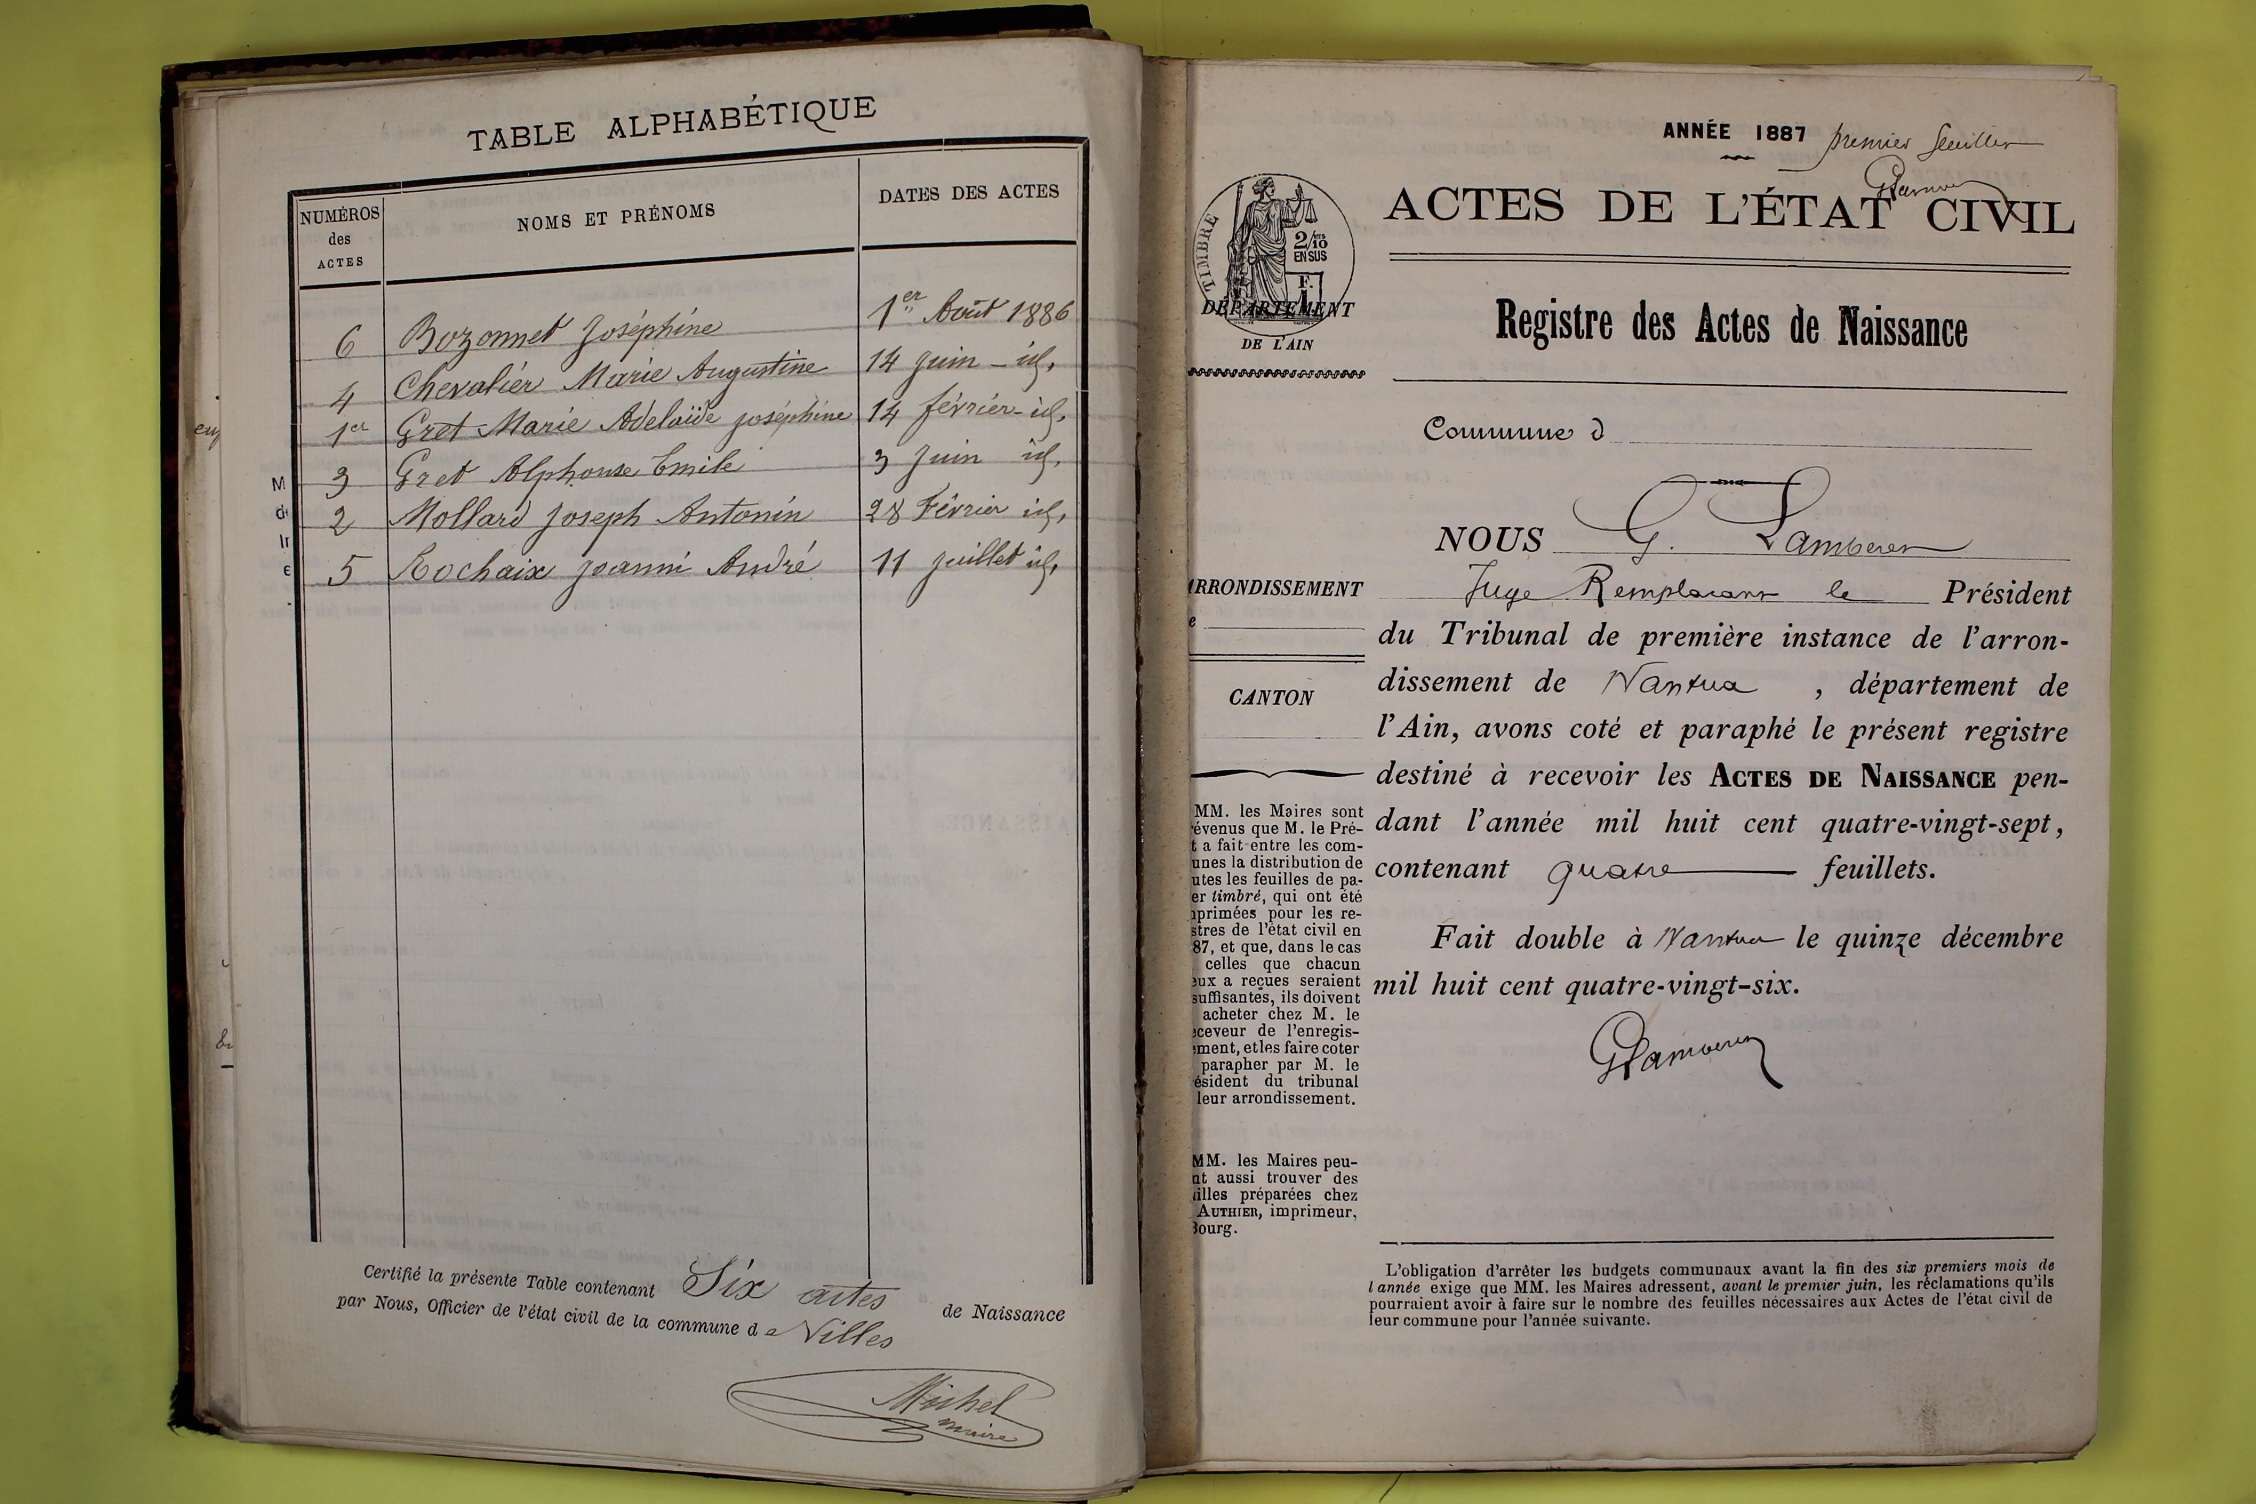 TABLE ALPHABÉTIQUE
NUMÉROS des ACTES
NOMS ET PRÉNOMS
DATES DES ACTES
6 Bozonnet Joséphine 1er Août 1886
4 Chevalier Marie Augustine 14 juin - id,
1er Gret Marie Adelaïde Joséphine 14 février - id,
3 Gret Alphonse Emile 3 Juin id,
2 Mollard Joseph Antonin 28 Février id,
5 Rochaix Joanni André 11 juillet id,
Certifié la présente Table contenant Six actes de Naissance
par Nous, Officier de l'état civil de la commune de Villes
Michel
maire
ANNÉE 1887 premier feuillet
ACTES DE L'ÉTAT CIVIL
TIMBRE
2/10
EN SUS
F.
DÉPARTEMENT
DE L'AIN
Registre des Actes de Naissance
Commune d
NOUS G. Lamberen
Juge Remplaçant le Président
du Tribunal de première instance de l'arron-
dissement de Nantua , département de
l'Ain, avons coté et paraphé le présent registre
destiné à recevoir les ACTES DE NAISSANCE pen-
dant l'année mil huit cent quatre-vingt-sept,
contenant quatre feuillets.
Fait double à Nantua le quinze décembre
mil huit cent quatre-vingt-six.
RRONDISSEMENT
e
CANTON
MM. les Maires sont
évenus que M. le Pré-
t a fait entre les com-
unes la distribution de
utes les feuilles de pa-
er timbré, qui ont été
primées pour les re-
stres de l'état civil en
87, et que, dans le cas
celles que chacun
eux a reçues seraient
suffisantes, ils doivent
acheter chez M. le
ceveur de l'enregis-
ment, et les faire coter
parapher par M. le
ésident du tribunal
leur arrondissement.
MM. les Maires peu-
nt aussi trouver des
illes préparées chez
AUTHIER, imprimeur,
Bourg.
L'obligation d'arrêter les budgets communaux avant la fin des six premiers mois de
l'année exige que MM. les Maires adressent, avant le premier juin, les réclamations qu'ils
pourraient avoir à faire sur le nombre des feuilles nécessaires aux Actes de l'état civil de
leur commune pour l'année suivante.